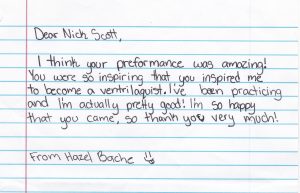 Dear Nick Scott,
I think your preformance was amazing!
You were so inspiring that you inspired me
to become a ventrilaquist. I've been practicing
and I'm actually pretty good! I'm so happy
that you came, so thank you very much!
From Hazel Bache